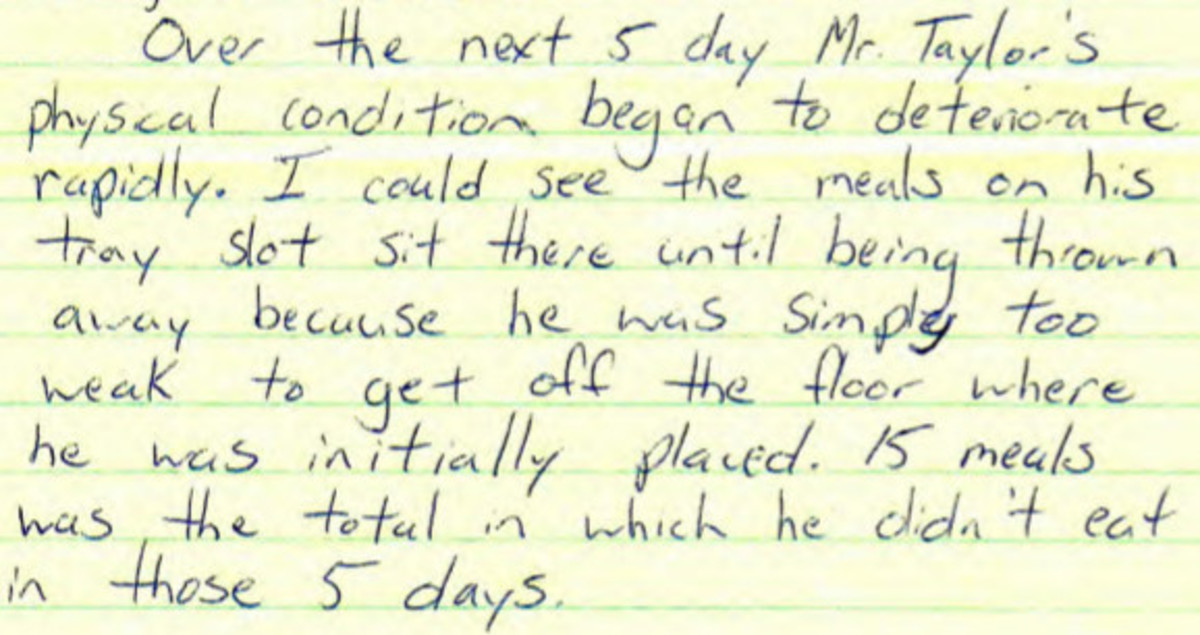 Over the next 5 day Mr. Taylor's
physical condition began to deteriorate
rapidly. I could see the meals on his
tray slot sit there until being thrown
away because he was simply too
weak to get off the floor where
he was initially placed. 15 meals
was the total in which he didn't eat
in those 5 days.